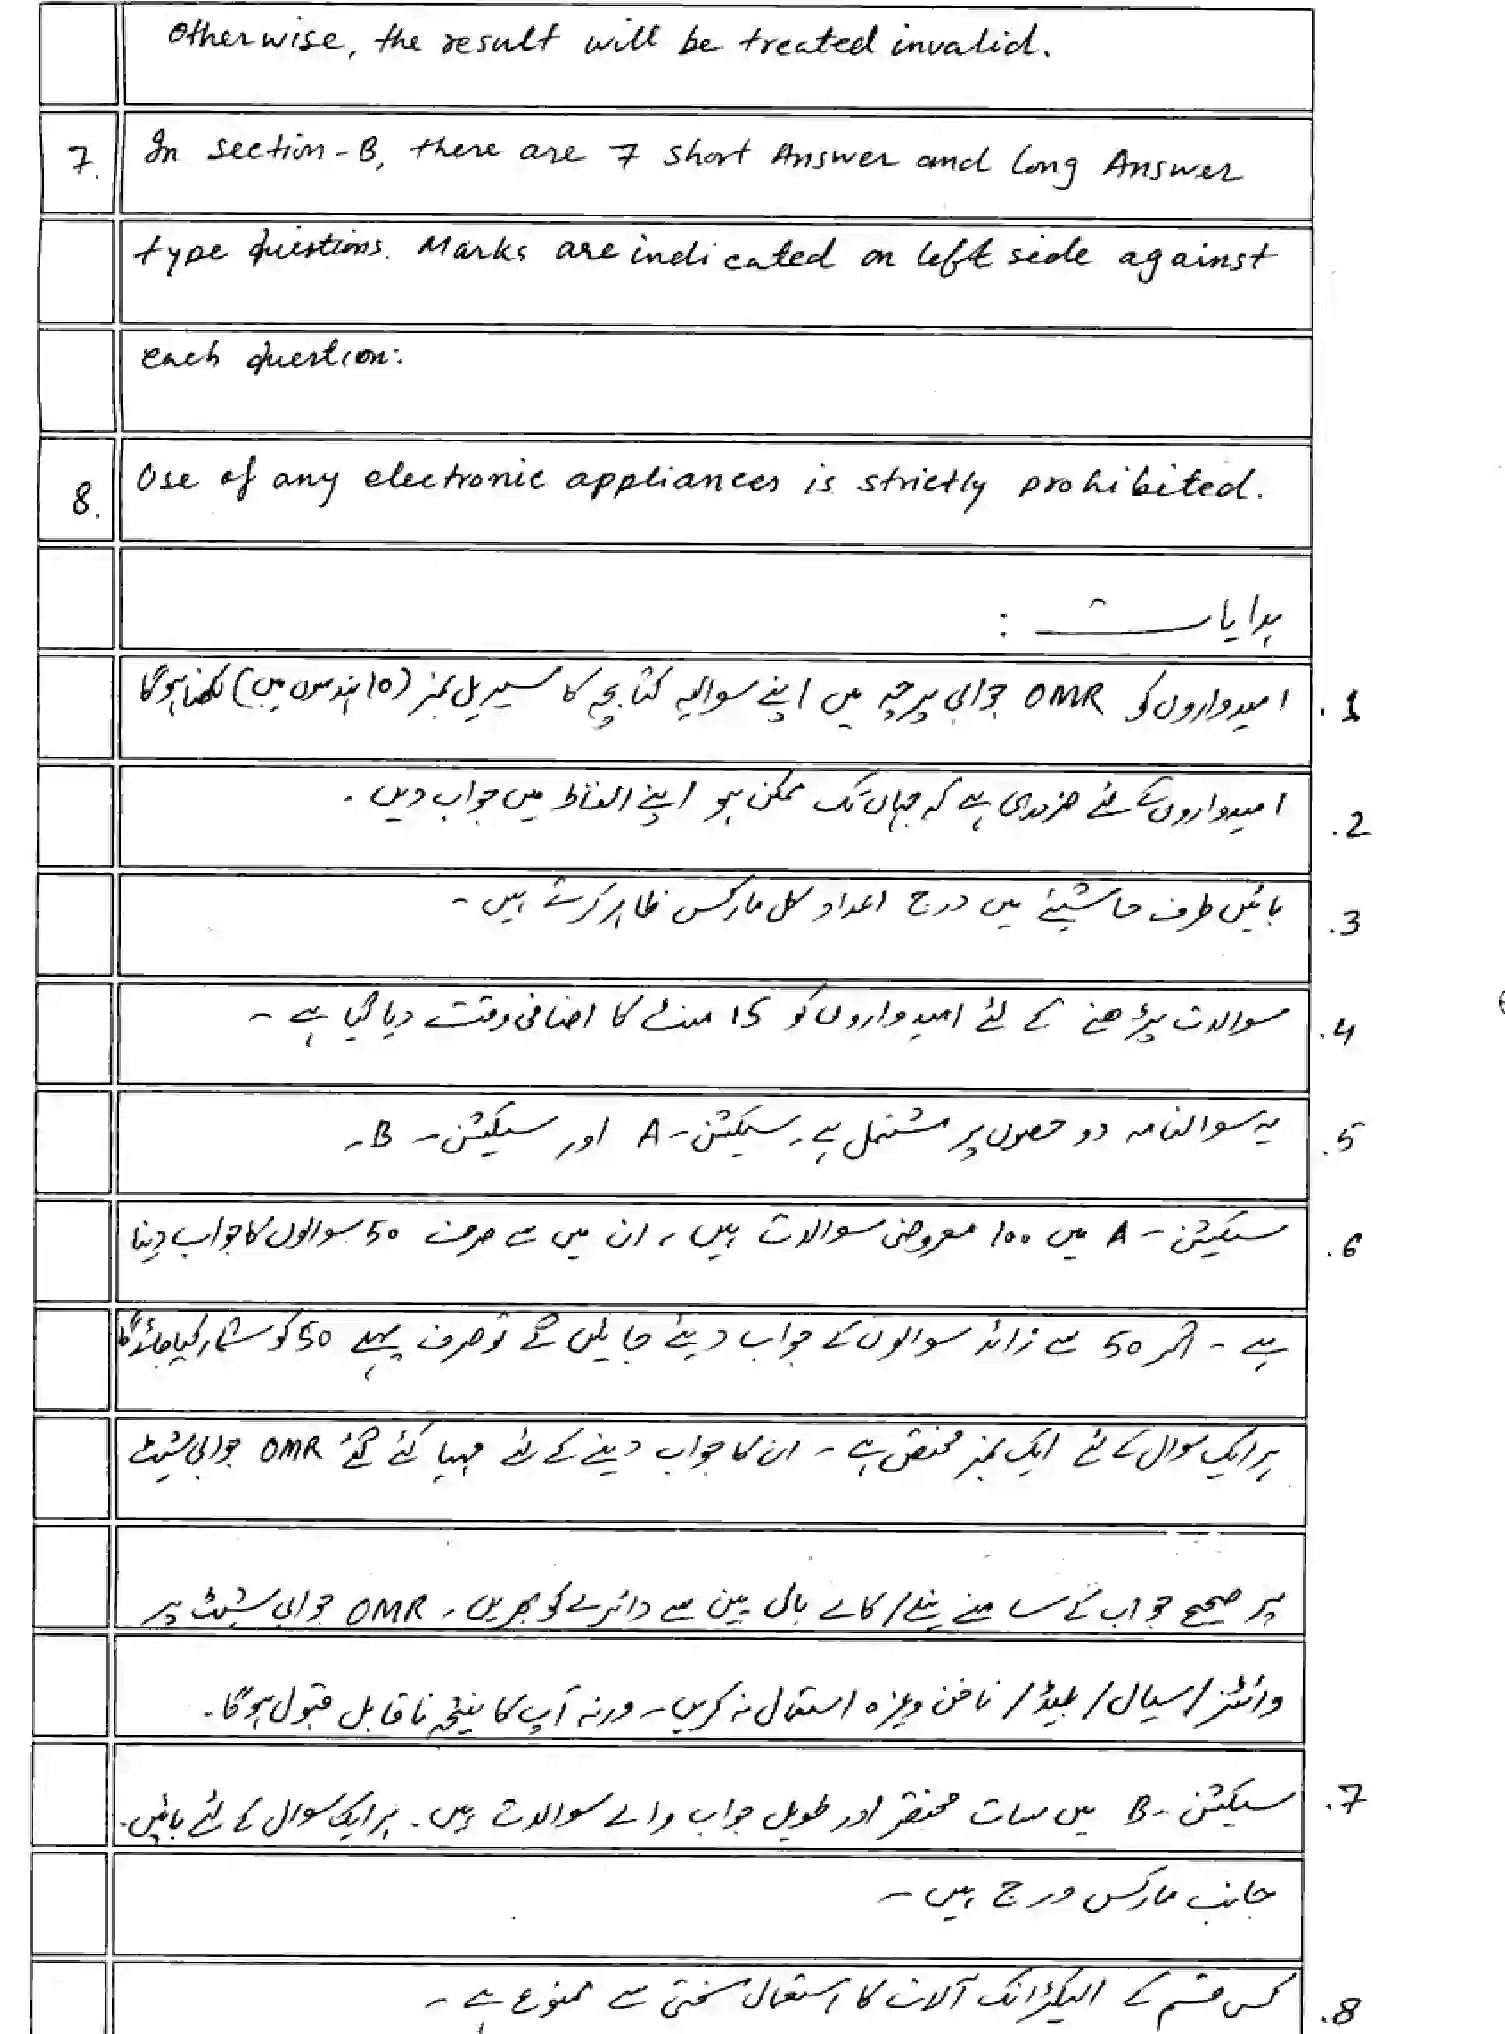 Otherwise, the result will be treated invalid.
7. In section-B, there are 7 short Answer and long Answer
type questions. Marks are indicated on left side against
each question.
8. Use of any electronic appliances is strictly prohibited.
ہدایات :
1. امیدواروں کو OMR جوابی پرچہ میں اپنے سوالیہ کتابچہ کا سیریل نمبر (10 ہندسوں میں) لکھنا ہوگا
2. امیدواروں کے لئے ضروری ہے کہ جہاں تک ممکن ہو اپنے الفاظ میں جواب دیں ۔
3. بائیں طرف حاشیئے میں درج اعداد کل مارکس ظاہر کرتے ہیں ۔
4. سوالات پڑھنے کے لئے امیدواروں کو 15 منٹ کا اضافی وقت دیا گیا ہے ۔
5. یہ سوالنامہ دو حصوں پر مشتمل ہے ۔ سیکشن - A اور سیکشن - B ۔
6. سیکشن - A میں 100 معروضی سوالات ہیں ۔ ان میں سے صرف 50 سوالوں کا جواب دینا
ہے ۔ اگر 50 سے زائد سوالوں کے جواب دیئے جائیں گے تو صرف پہلے 50 کو شمار کیا جائے گا
ہر ایک سوال کے لئے ایک نمبر مختص ہے ۔ ان کا جواب دینے کے لئے مہیا کئے گئے OMR جوابی شیٹ
پر صحیح جواب کے سامنے نیلے / کالے بال پین سے دائرے کو بھریں ۔ OMR جوابی شیٹ پر
وائٹنر / سیال / بلیڈ / ناخن وغیرہ استعمال نہ کریں ۔ ورنہ آپ کا نتیجہ ناقابل قبول ہوگا ۔
7. سیکشن - B میں سات مختصر اور طویل جواب والے سوالات ہیں ۔ ہر ایک سوال کے لئے بائیں
جانب مارکس درج ہیں ۔
8. کسی قسم کے الیکٹرانک آلات کا استعمال سختی سے ممنوع ہے ۔